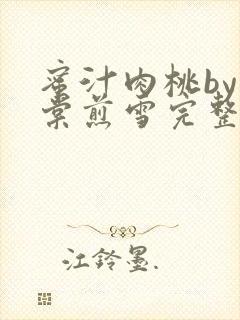 蜜汁肉桃by
棠煎雪完整
江铃墨.